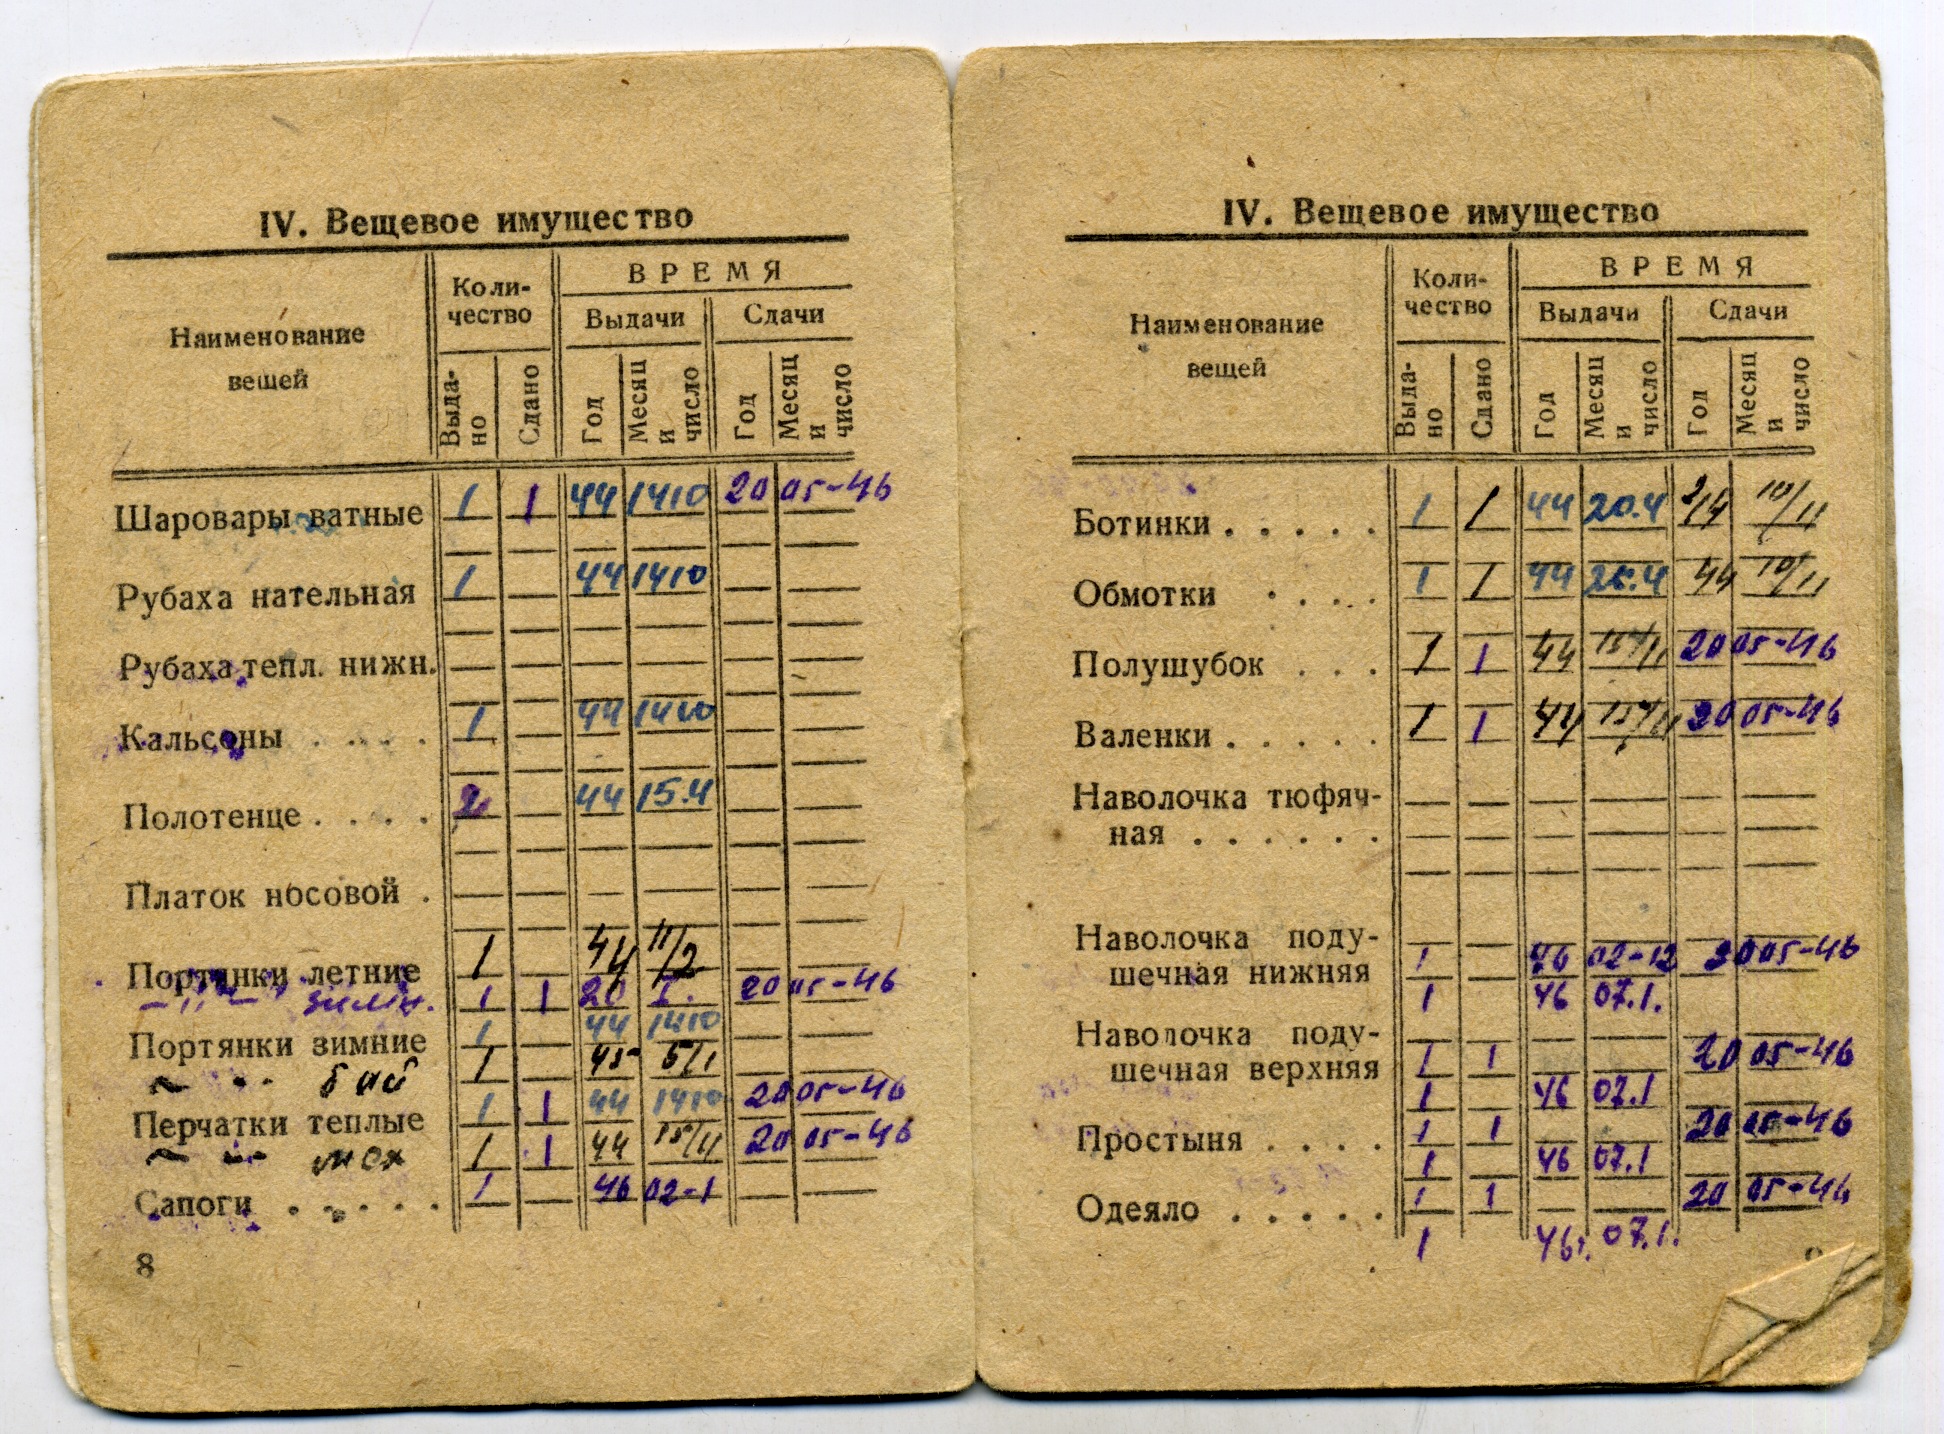 IV. Вещевое имущество
Наименование вещей
Коли-
чество
ВРЕМЯ
Выдачи
Сдачи
Выда-
но
Сдано
Год
Месяц
и
число
Год
Месяц
и
число
Шаровары ватные 1 1 44 1410 20 05-46
Рубаха нательная 1 44 1410
Рубаха тепл. нижн.
Кальсоны . . . . 1 44 1410
Полотенце . . . . 2 44 15.4
Платок носовой .
Портянки летние 1 44 11/2
-"- зимн. 1 1 20 I. 20 05-46
Портянки зимние 1 44 1410
бай 1 45 5/1
Перчатки теплые 1 1 44 1410 20 05-46
1 1 44 15/11 20 05-46
Сапоги . . . . . 1 46 02-1
8
IV. Вещевое имущество
Наименование
вещей
Коли-
чество
ВРЕМЯ
Выдачи
Сдачи
Выда-
но
Сдано
Год
Месяц
и
число
Год
Месяц
и
число
Ботинки . . . . . 1 1 44 20.4 10/11
Обмотки . . . . 1 1 44 44 10/11
Полушубок . . . 1 1 44 20 05-46
Валенки . . . . . 1 1 44 20 05-46
Наволочка тюфяч-
ная . . . . . .
Наволочка поду-
шечная нижняя 1 46 02-12 20 05-46
1 46 07.1.
Наволочка поду-
шечная верхняя 1 1 20 05-46
1 46 07.1
Простыня . . . . 1 1 20 05-46
1 46 07.1
Одеяло . . . . . 1 1 20 05-46
1 46г. 07.1.